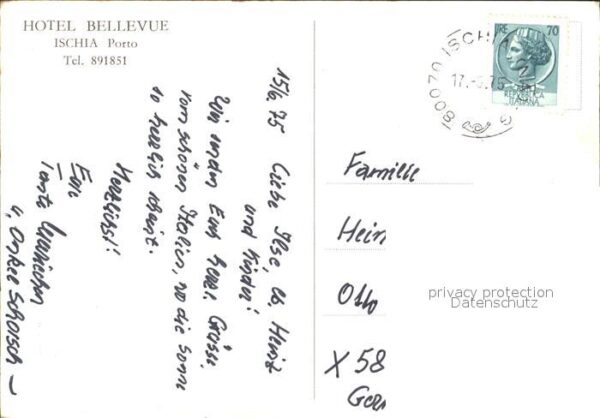 HOTEL BELLEVUE
ISCHIA Porto
Tel. 891851
15/6.75 Liebe Ilse, lb Heinz
und Kinder!
Wir senden Euch herzl. Grüsse
vom schönen Italien, wo die Sonne
so herrlich scheint.
Herzlichst!
Eure
Tante
u. Onkel Schorsch –
LIRE 70
REPUBBLICA
ITALIANA
80070 ISCHIA
17.-6.75
Familie
Hein
Otto
privacy protection
Datenschutz
X 58
Gera